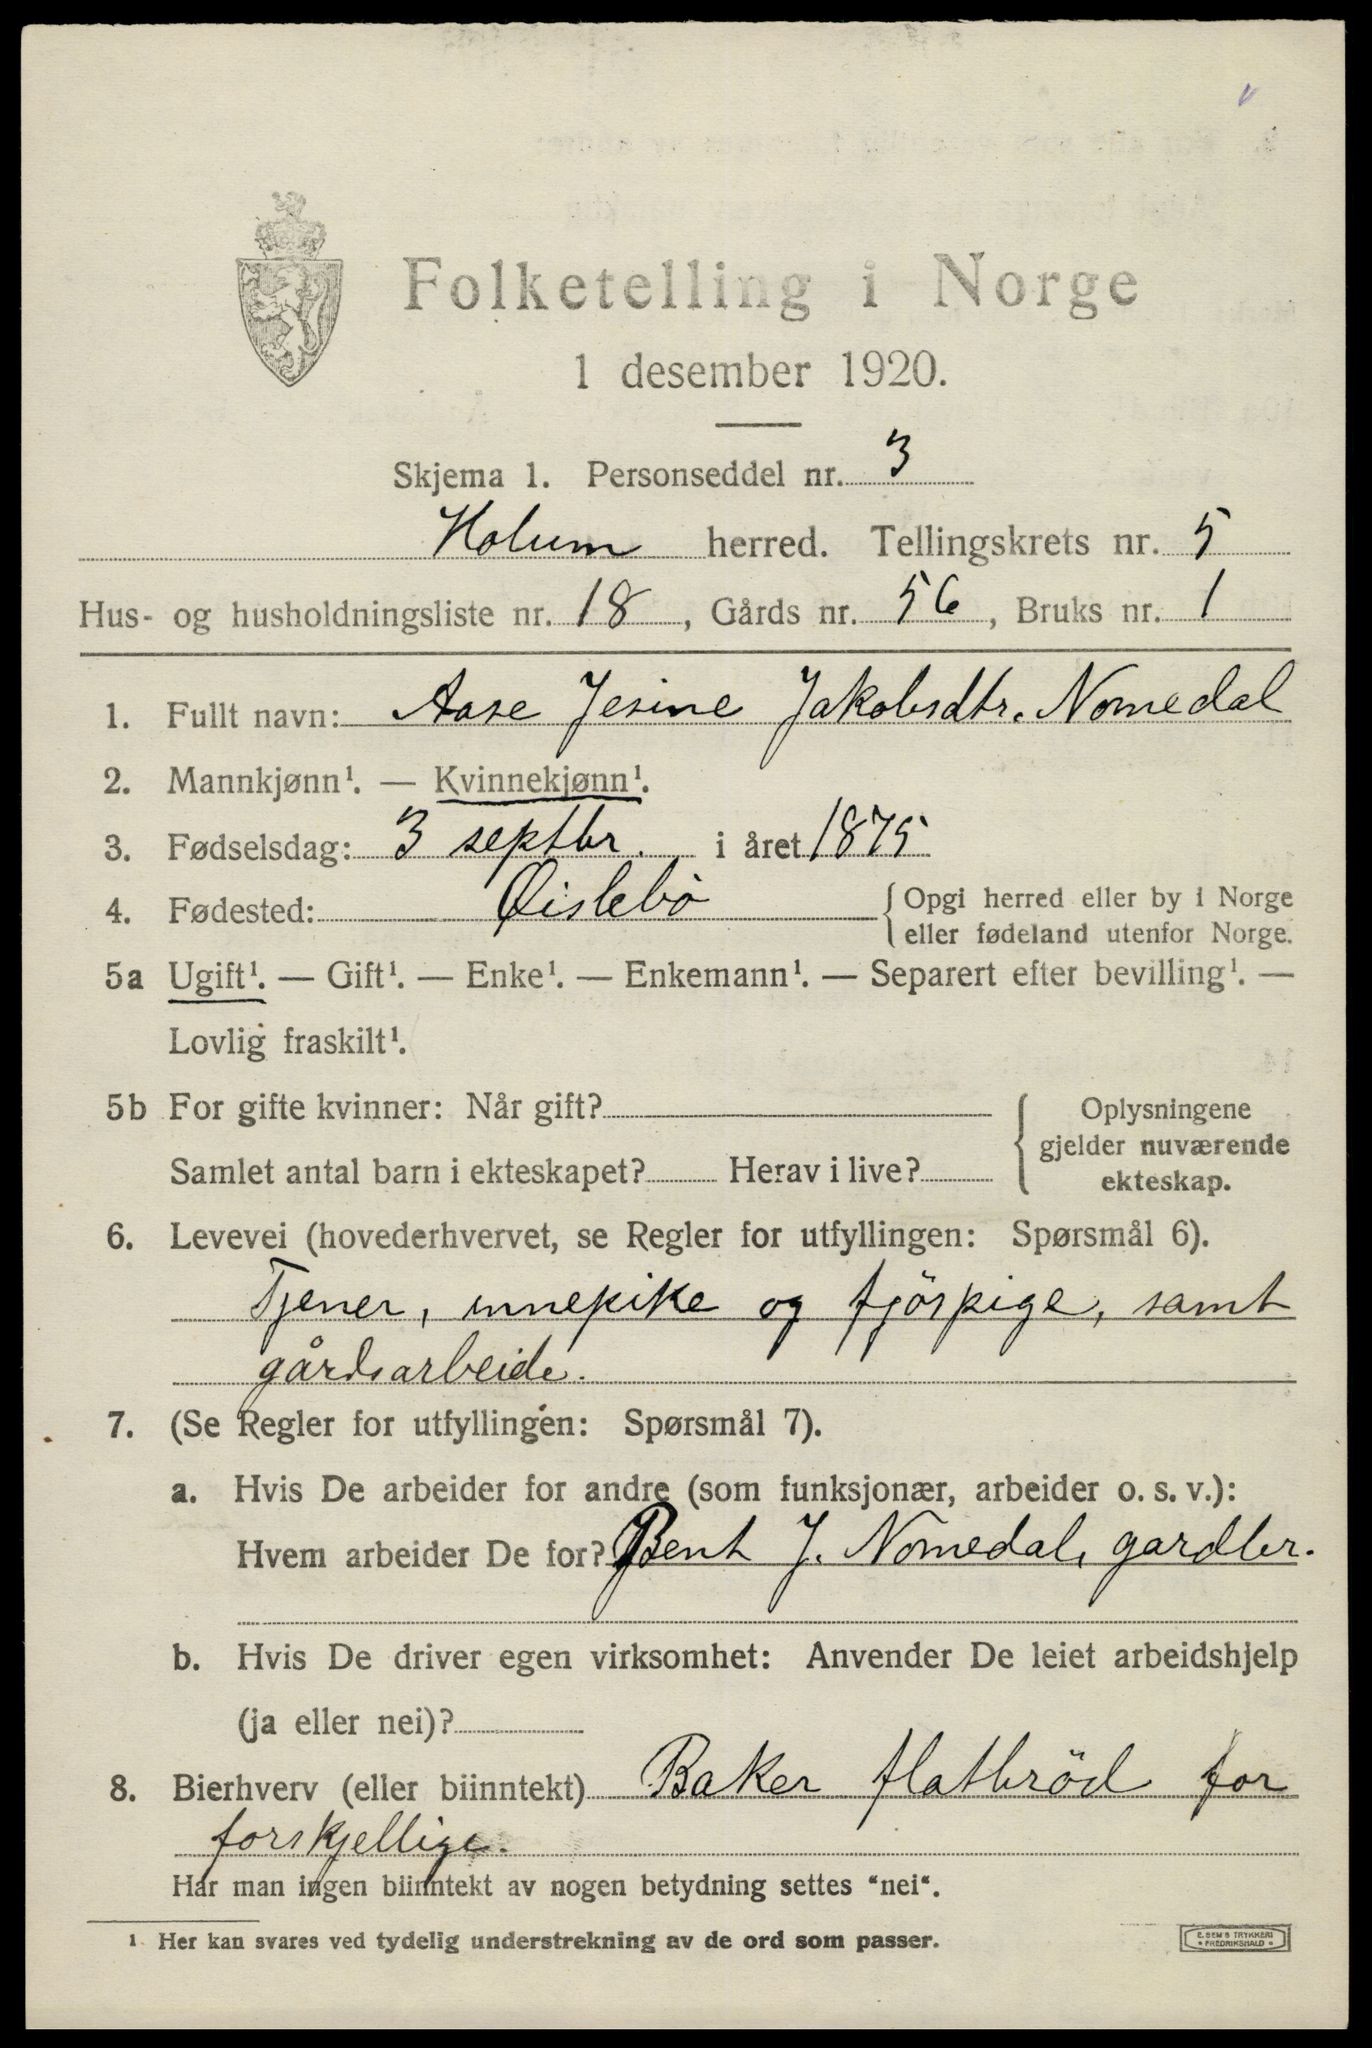 Folketelling i Norge
1 desember 1920.
Skjema 1. Personseddel nr. 3
Holum herred. Tellingskrets nr. 5
Hus- og husholdningsliste nr. 18, Gårds nr. 56, Bruks nr. 1
1. Fullt navn: Aase Jesine Jakobsdtr. Nomedal
2. Mannkjønn¹. — Kvinnekjønn¹.
3. Fødselsdag: 3 septbr. i året 1875
4. Fødested: Øislebö { Opgi herred eller by i Norge
eller fødeland utenfor Norge.
5a Ugift¹. — Gift¹. — Enke¹. — Enkemann¹. — Separert efter bevilling¹. —
Lovlig fraskilt¹.
5b For gifte kvinner: Når gift? { Oplysningene
gjelder nuværende
Samlet antal barn i ekteskapet? Herav i live? ekteskap.
6. Levevei (hovederhvervet, se Regler for utfyllingen: Spørsmål 6).
Tjener, innepike og fjöspige, samt
gårdsarbeide.
7. (Se Regler for utfyllingen: Spørsmål 7).
a. Hvis De arbeider for andre (som funksjonær, arbeider o. s. v.):
Hvem arbeider De for? Bent J. Nomedal, gardbr.
b. Hvis De driver egen virksomhet: Anvender De leiet arbeidshjelp
(ja eller nei)?
8. Bierhverv (eller biinntekt) Baker flatbröd for
forskjellige.
Har man ingen biinntekt av nogen betydning settes "nei".
¹ Her kan svares ved tydelig understrekning av de ord som passer.
E. SEM'S TRYKKERI
* FREDRIKSHALD *